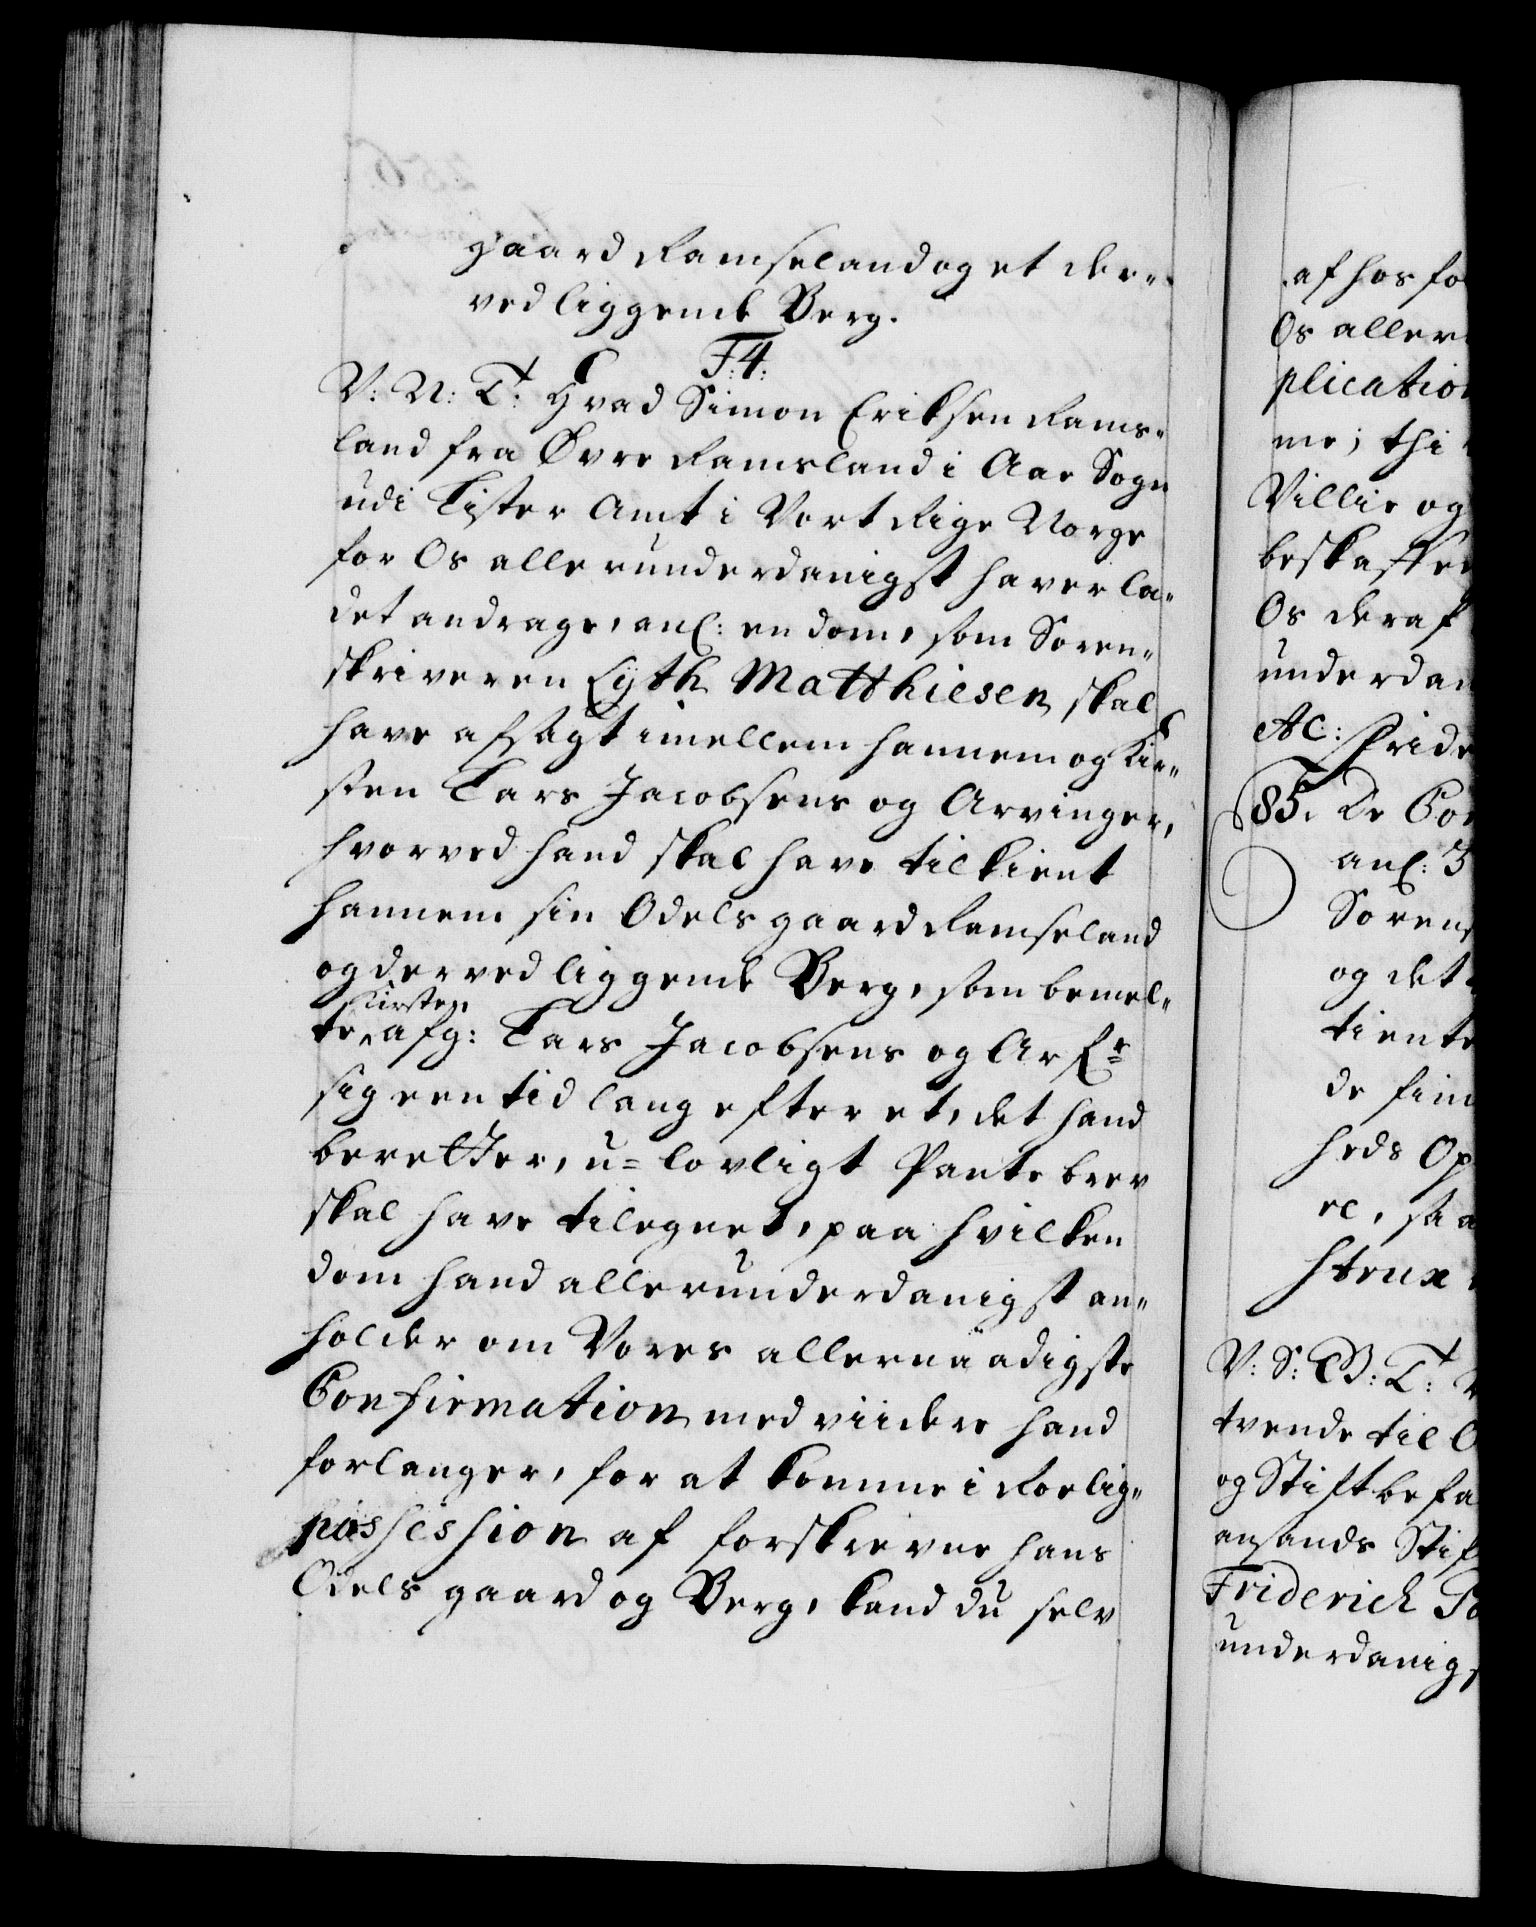 gaard Ramseland og et der-
ved liggende Berg.
F:4:
V: N: T: Hvad Simon Eriksen Rams-
land fra Øvre Ramsland i Aae Sogn
udi Lister Amt i Vort Rige Norge
for Os allerunderdanigst haver la-
det andrage, anl: en dom, som Soren-
skriveren Eyth Matthiesen, skal
have afsagt imellem hannem og Kir-
sten Lars Jacobsens og Arvinger,
hvorved hand skal have tilkient
hannem sin Odels gaard Ramseland
og derved liggende Berg, som bemel-
te Kirsten afg: Lars Jacobsens og Arfr
sig een tid lang efter et, det hand
beretter, u-lovligt Pantebrev
skal have tilegnet, paa hvilken
dom hand allerunderdanigst an-
holder om Vores allernaadigste
Confirmation, med viidere hand
forlanger, for at komme i Roelig
possession af forskrevne hans
Odels gaard og Berg, kand du selv
af hos fo
Os aller
plication
me; thi
Villie og
beskaffen
Os deraf
underdan
Ac: Fride
85. De Co
anl: 3
Sorens
og det
tiente
de fin
heds Op
el, saa
strux
V: S: B: T:
tvende til O
og Stiftbefa
ansands Stif
Friderich
underdanigs